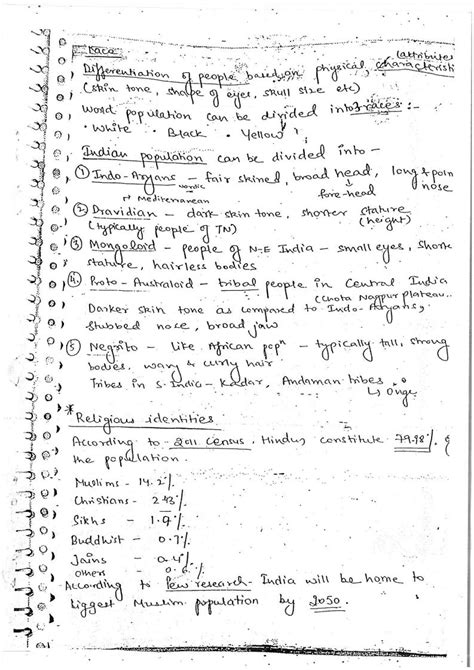 Race
(attributes
Differentiation of people based on physical characteristi
(skin tone, shape of eyes, skull size etc)
Word population can be divided into 3 races :-
• White • Black • Yellow
Indian population can be divided into -
① Indo-Aryans - fair skined, broad head, long & poin
nordic
fore-head nose
Mediterranean
② Dravidian - dark skin tone, shorter stature
(typically people of TN) (height)
③ Mongoloid - people of N-E India - small eyes, short
stature, hairless bodies
④ Proto-Australoid - tribal people in Central India
(Chota Nagpur plateau..
Darker skin tone as compared to Indo-Aryans,
stubbed nose, broad jaw
⑤ Negrito - Like African popn - typically tall, strong
bodies, wavy & curly hair
Tribes in S.India - Kadar, Andaman tribes
↳ Onge
* Religious identities
According to 2011 Census, Hindus constitute 79.98%. of
the population.
Muslims - 14.2%
Christians - 2.3%
Sikhs - 1.9%
Buddhist - 0.7%
Jains - 0.4%
others - 0.6%
According to Pew research India will be home to
biggest Muslim population by 2050.